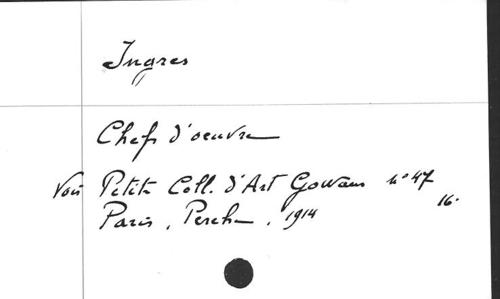 Ingres
Chefs d'oeuvre
Voir Petite Coll. d'Art Gowans n° 47
Paris, Perche, 1914 16.